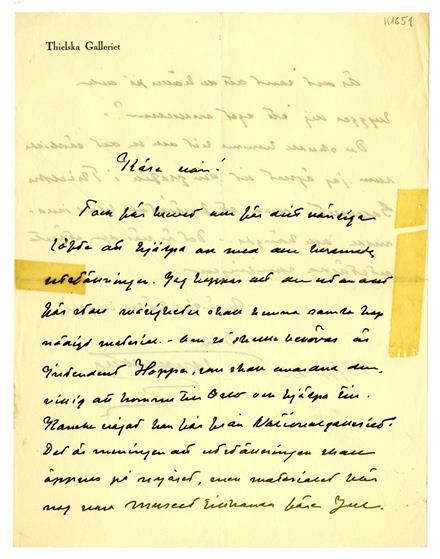 K1651
Thielska Galleriet
Kära vän!
Tack för brevet och för ditt vänliga
löfte att hjälpa oss med den
utställningen. Jag hoppas att du utan allt
för stora svårigheter skall kunna samla hop
nödigt material. - Om så skulle behövas är
Intendent Hoppe, som skall den,
villig att komma till Oslo och hjälpa till.
Kanske något kan fås från Nationalgalleriet?
Det är meningen att utställningen skall
öppnas på nyåret, men materialet bör
nog vara museet tillhanda före Jul.